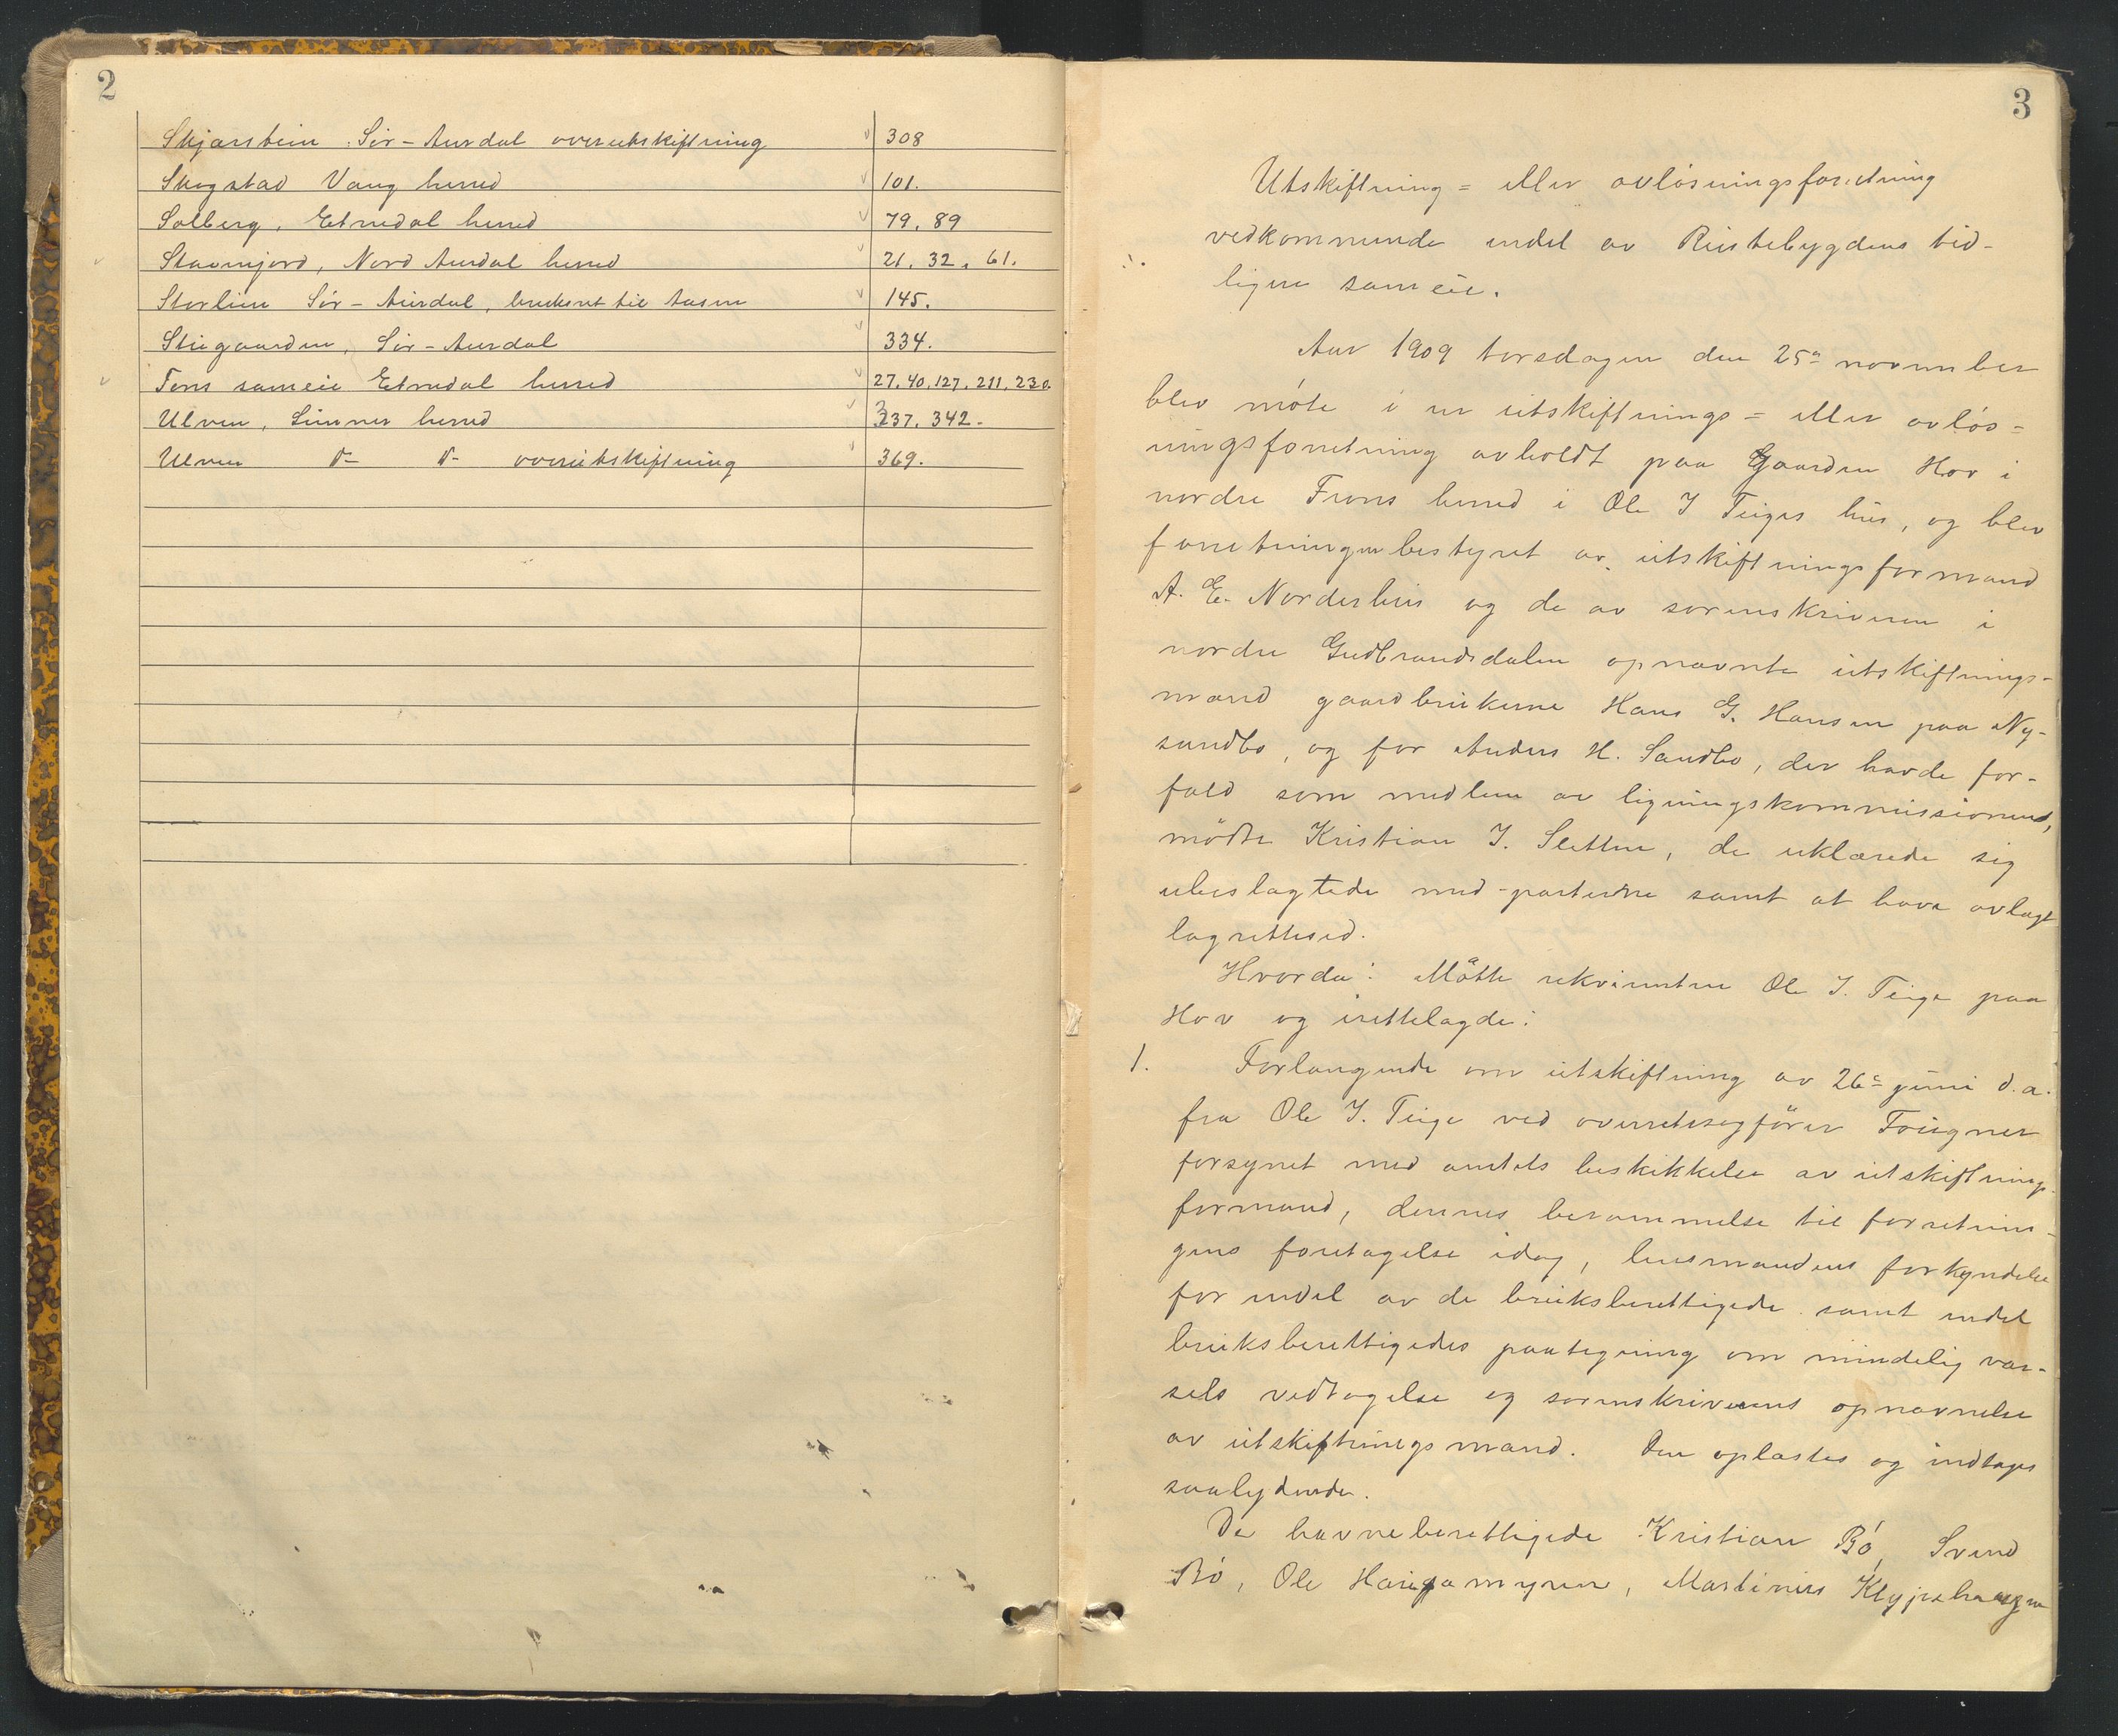 2
Skjærstein Sør-Aurdal overutskiftning 308
Skogstad Vang herred 101.
Solberg, Etnedal herred 79. 89
Stavnjord, Nord Aurdal herred 21. 32. 61.
Storlien Sør-Aurdal, bruksret til tasm 145.
Stugaarden, Sør-Aurdal 334.
Tons sameie Etnedal herred 27. 40. 127. 211. 230.
Ulven, Søndre herred 337. 342.
Ulven d- d- overutskiftning 369.
3
Utskiftning = eller avløsningsforretning
vedkommende endel av Rustebygdens tid-
ligere sameie.
Aar 1909 torsdagen den 25de november
blev møte i en utskiftnings = eller avløs=
ningsforretning avholdt paa Gaarden Hov i
nordre Frons herred i Ole J Teiges hus, og blev
forretningen bestyret av utskiftningsformand
A. E. Norderhus og de av sorenskriveren i
nordre Gudbrandsdalen opnævnte utskiftnings-
mænd gaardbrukerne Hans G. Hansen paa Ny-
sandbo, og for Anders H. Sandbo, der havde for-
fald som medlem av ligningskommissionen,
mødte Kristian J. Sletten, de erklærede sig
ubeslagtede med parterne samt at have avlagt
lagrettesed.
Hvorda: Møtte rekvirenten Ole J. Teige paa
Hov og irettelagde:
1. Forlangende om utskiftning av 26de juni d.a.
fra Ole J. Teige ved overretssagfører Fougner
forsynet med amtets beskikkelse av utskiftnings-
formand, dennes berammelse til forretnin-
gens foretagelse idag, lensmandens forkyndelse
for endel av de bruksberettigede samt endel
bruksberettigedes paategning om mindelig var-
sels vedtagelse og sorenskriverens opnævnelse
av utskiftningsmænd. Den oplæstes og indtages
saalydende.
De havneberettigede Kristian Bø, Svend
Bø, Ole Haugamyren, Martinus Klypehaugen